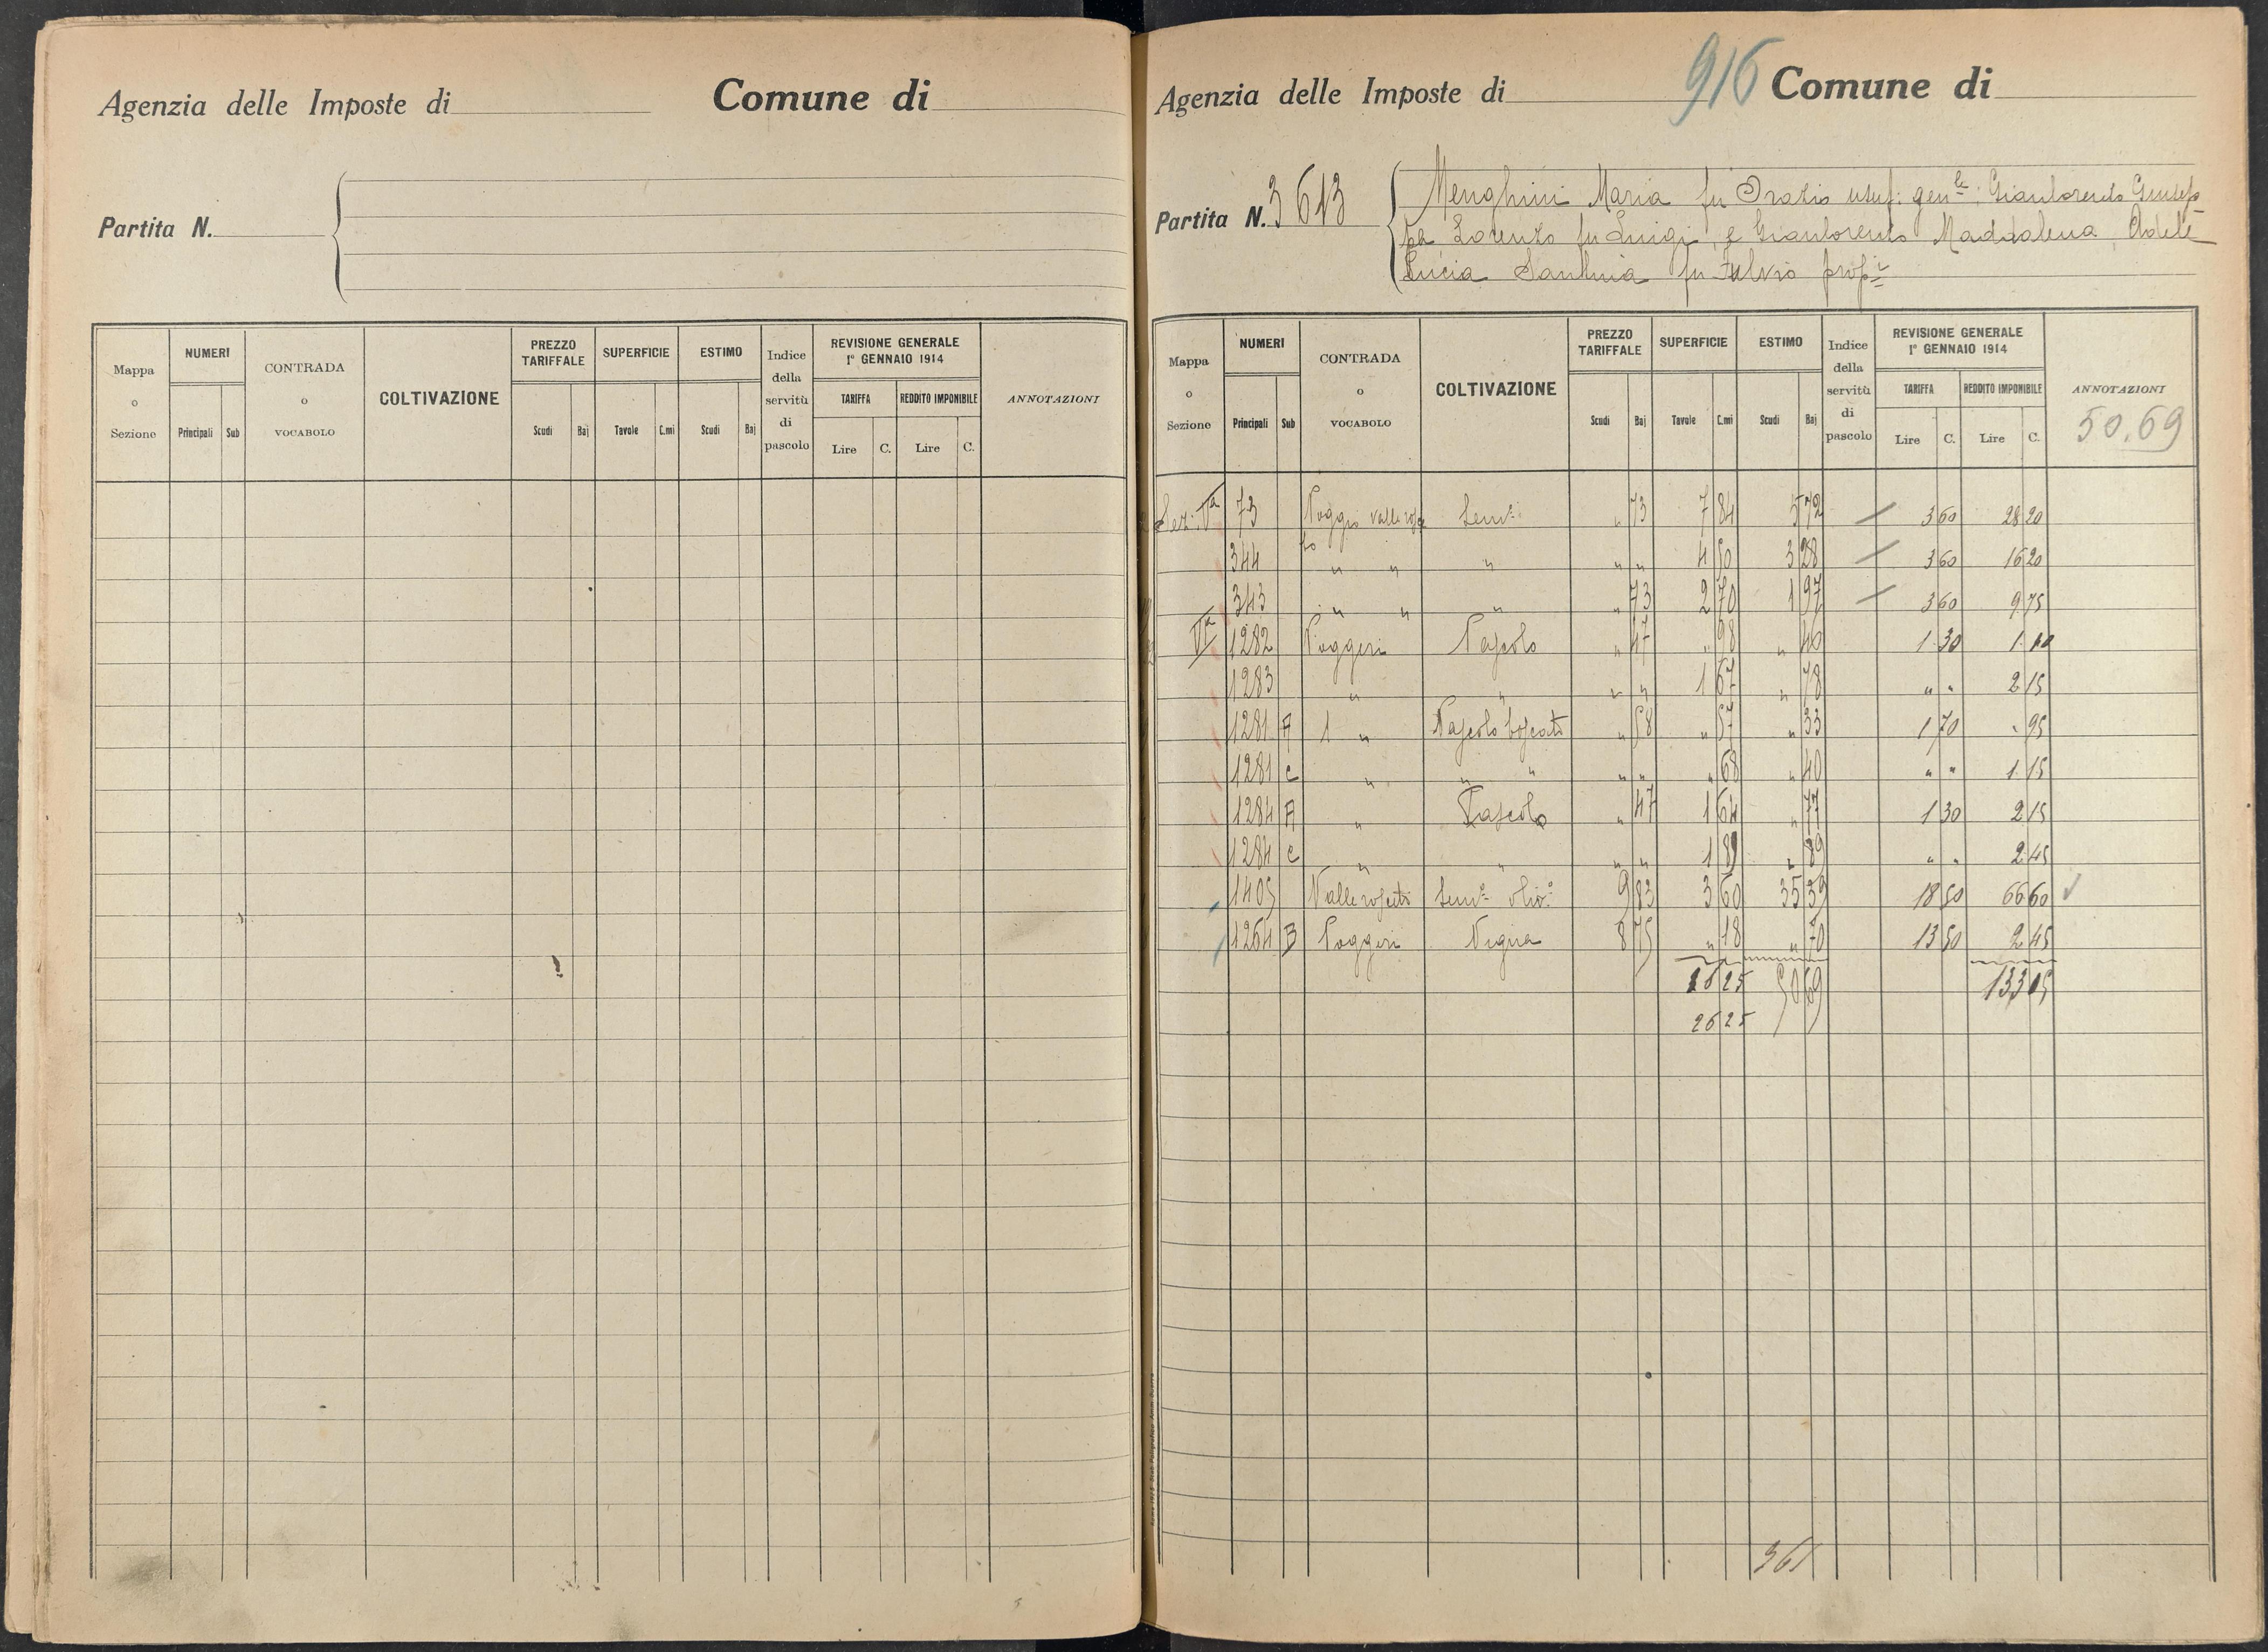 Agenzia delle Imposte di Comune di
Partita N.
Mappa o Sezione NUMERI Principali Sub CONTRADA o VOCABOLO COLTIVAZIONE PREZZO TARIFFALE Scudi Baj SUPERFICIE Tavole C.mi ESTIMO Scudi Baj Indice della servitù di pascolo REVISIONE GENERALE 1° GENNAIO 1914 TARIFFA Lire C. REDDITO IMPONIBILE Lire C. ANNOTAZIONI
916
Agenzia delle Imposte di Comune di
Partita N. 3613
Menghini Maria fu Orazio usuf: gen.le: Gianlorenzo Giusep
pe Lorenzo fu Luigi, e Gianlorenzo Maddalena Adele
Lucia Santina fu Fulvio prop.i
Mappa o Sezione NUMERI Principali Sub CONTRADA o VOCABOLO COLTIVAZIONE PREZZO TARIFFALE Scudi Baj SUPERFICIE Tavole C.mi ESTIMO Scudi Baj Indice della servitù di pascolo REVISIONE GENERALE 1° GENNAIO 1914 TARIFFA Lire C. REDDITO IMPONIBILE Lire C. ANNOTAZIONI
50.69
Sez. Va 73 Poggio Semo: " 73 7 84 5 72 3 60 28 20
344 " " " " " 4 50 3 28 3 60 16 20
343 " " " " 73 2 70 1 97 3 60 9 75
VIa 1282 Poggeri Pascolo " 47 " 98 " 46 1.30 1.
1283 " " " " 1 67 " 78 " " 2 15
1281 A 1 " Pascolo boscato " 58 " 57 " 33 1 70 " 95
1281 c " " " " " " 68 " 40 " " 1.15
1284 A " Pascolo " 47 1 64 " 77 1 30 2 15
1284 c " " " " 1 89 " 89 " " 2 45
1405 Semo olivo 9 83 3 60 35 39 18 50 66 60
1264 B Poggeri Vigna 8 75 " 18 " 70 13 50 2 45
26 25 50 69 133 05
26 25
361